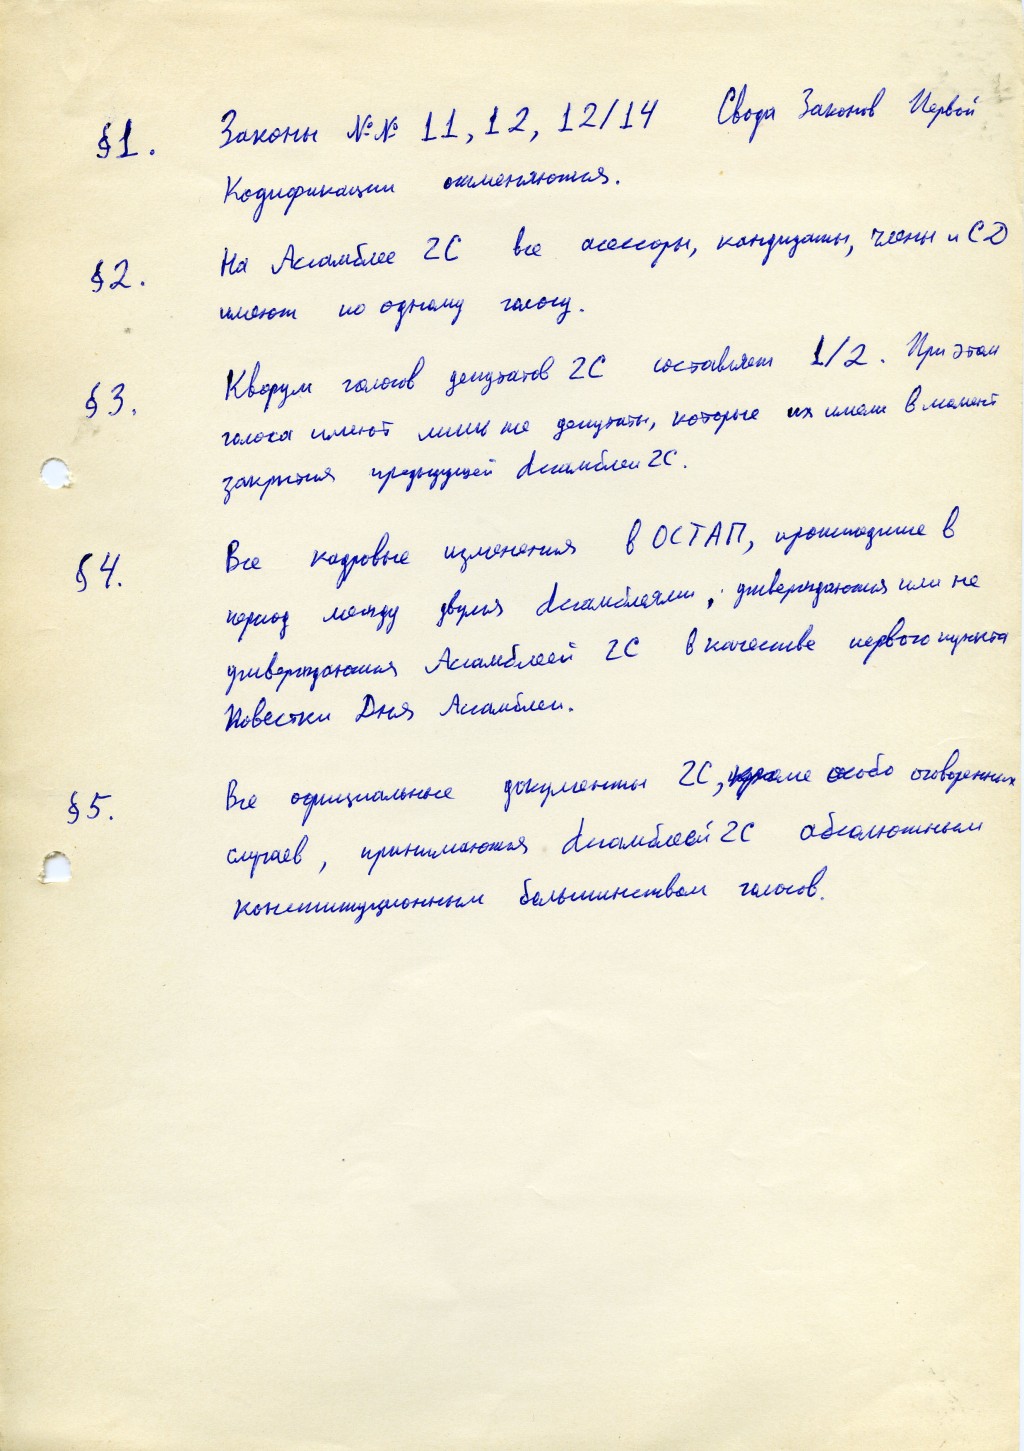 §1. Законы №№ 11, 12, 12/14 Свода Законов Первой
Кодификации отменяются.
§2. На Ассамблее 2С все асессоры, кандидаты, члены и СД
имеют по одному голосу.
§3. Кворум голосов депутатов 2С составляет 1/2. При этом
голоса имеют лишь те депутаты, которые их имели в момент
закрытия предыдущей Ассамблеи 2С.
§4. Все кадровые изменения в ОСТАП, происшедшие в
период между двумя Ассамблеями, утверждаются или не
утверждаются Ассамблеей 2С в качестве первого пункта
Повестки Дня Ассамблеи.
§5. Все официальные документы 2С, кроме особо оговоренных
случаев, принимаются Ассамблеей 2С абсолютным
конституционным большинством голосов.